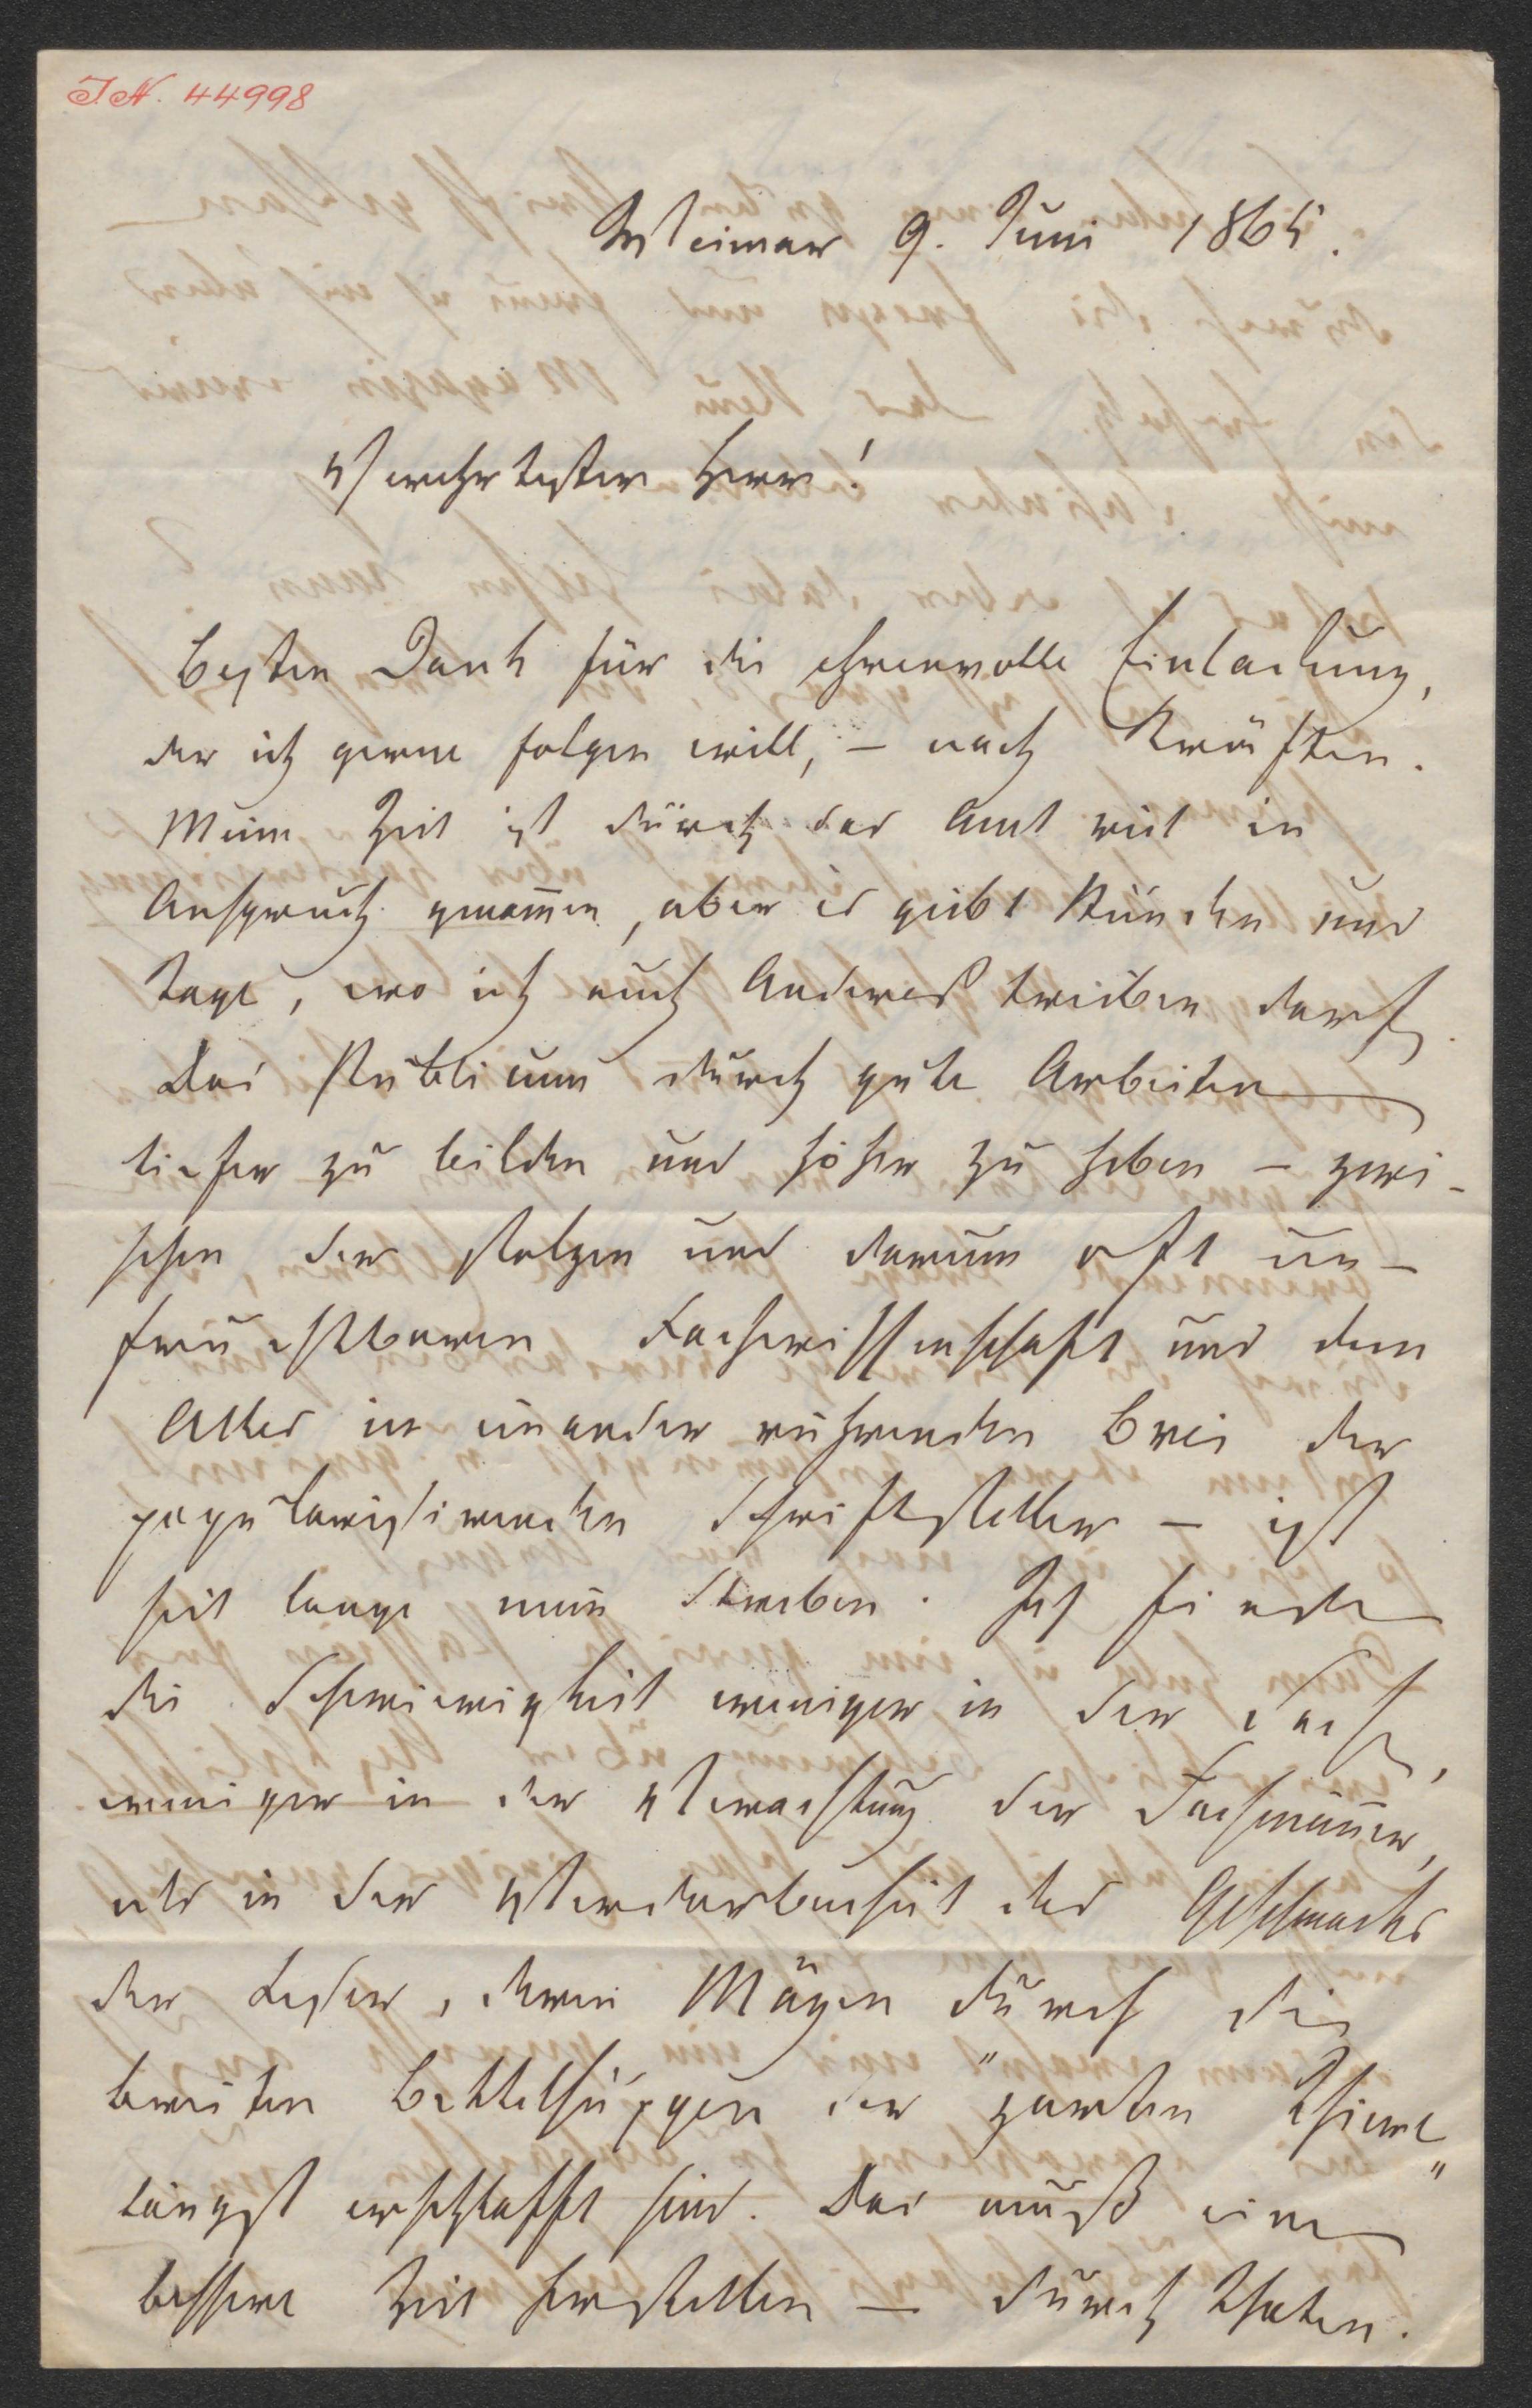 I.N. 44998
Weimar 9. Juni 1865.
Verehrtester Herr!
Besten Dank für die ehrenvolle Einladung,
der ich gerne folgen will, – nach Kräften.
Meine Zeit ist durch das Amt viel in
Anspruch genommen, aber es giebt Stunden und
Tage, wo ich auch Anderes treiben darf.
Das Publicum durch gute Arbeiten
tiefer zu bilden und höher zu heben – zwi-
schen der stolzen und darum oft un-
fruchtbaren Fachwissenschaft und dem
Alles in einander rührenden Brei der
popularisirenden Schriftsteller – ist
seit lange mein Streben. Ich finde
die Schwierigkeit weniger in der Sache,
weniger in der Verachtung der Fachmänner,
als in der Verdorbenheit des Geschmacks
der Leser, deren Mägen durch die
breiten Bettelsuppen der "zarten Thiere"
längst erschlafft sind. Das muß eine
bessere Zeit herstellen – durch Thaten.